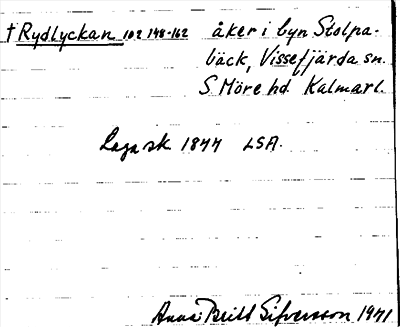 † Rydlyckan 102 148-162 åker i byn Stolpa-
bäck, Vissefjärda sn.
S. Möre hd. Kalmarl.
Laga sk 1877 LSA.
Anna Britt Sifversson 1971